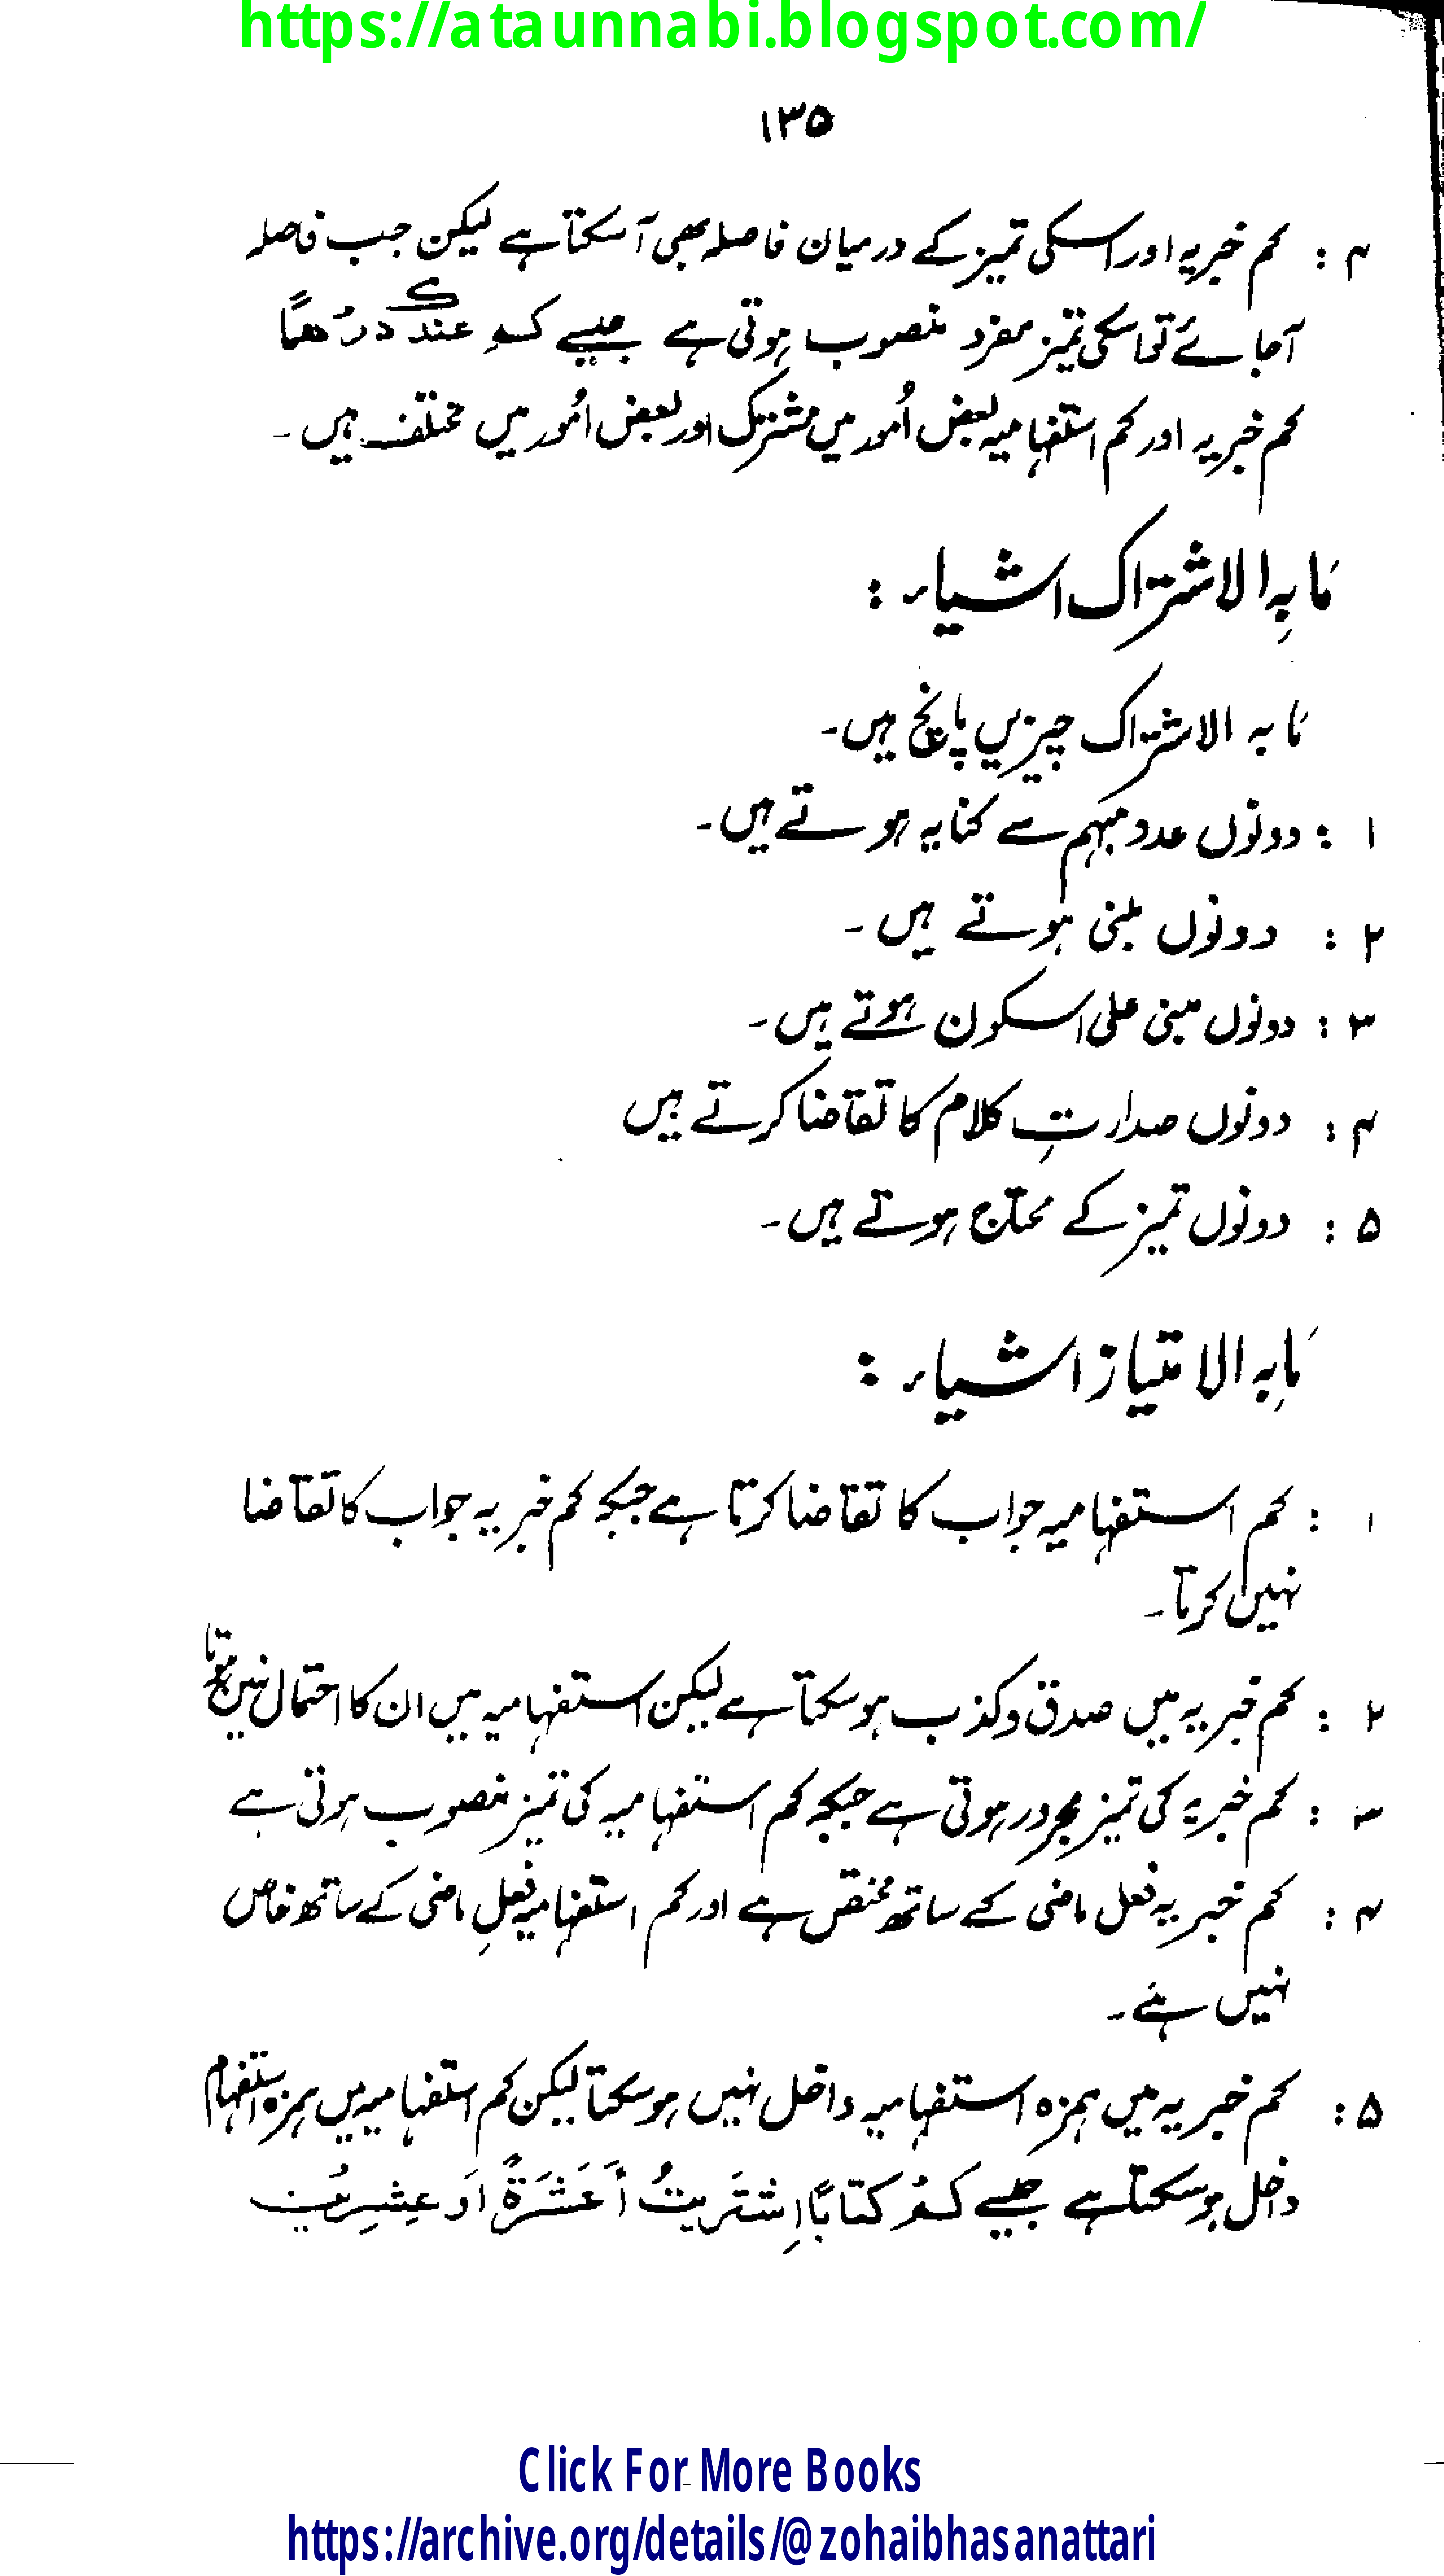 https://ataunnabi.blogspot.com/
۱۳۵
۴ : کم خبریہ اور اسکی تمیز کے درمیان فاصلہ بھی آ سکتا ہے لیکن جب فاصلہ
آجائے تو اسکی تمیز مفرد منصوب ہوتی ہے جیسے کم عندك درهما
کم خبریہ اور کم استفہامیہ بعض اُمور میں مشترک اور بعض اُمور میں مختلف ہیں۔
مَا بِہ الاشتراک اشیاء :
مَا بہ الاشتراک چیزیں پانچ ہیں۔
۱ : دونوں عدد مبہم سے کنایہ ہوتے ہیں۔
۲ : دونوں مبنی ہوتے ہیں۔
۳ : دونوں مبنی علی السکون ہوتے ہیں۔
۴ : دونوں صدارتِ کلام کا تقاضا کرتے ہیں
۵ : دونوں تمیز کے محتاج ہوتے ہیں۔
مَا بِہ الامتیاز اشیاء :
۱ : کم استفہامیہ جواب کا تقاضا کرتا ہے جبکہ کم خبریہ جواب کا تقاضا
نہیں کرتا۔
۲ : کم خبریہ میں صدق و کذب ہو سکتا ہے لیکن استفہامیہ میں ان کا احتمال نہیں ہوتا
۳ : کم خبریہ کی تمیز مجرور ہوتی ہے جبکہ کم استفہامیہ کی تمیز منصوب ہوتی ہے
۴ : کم خبریہ فعل ماضی کے ساتھ مختص ہے اور کم استفہامیہ فعلِ ماضی کے ساتھ خاص
نہیں ہے۔
۵ : کم خبریہ میں ہمزہ استفہامیہ داخل نہیں ہو سکتا لیکن کم استفہامیہ میں ہمزہ استفہام
داخل ہو سکتا ہے جیسے كم كتابًا اِشتَريتُ أَعَشَرَةً اَو عِشرِينَ
Click For More Books
https://archive.org/details/@zohaibhasanattari